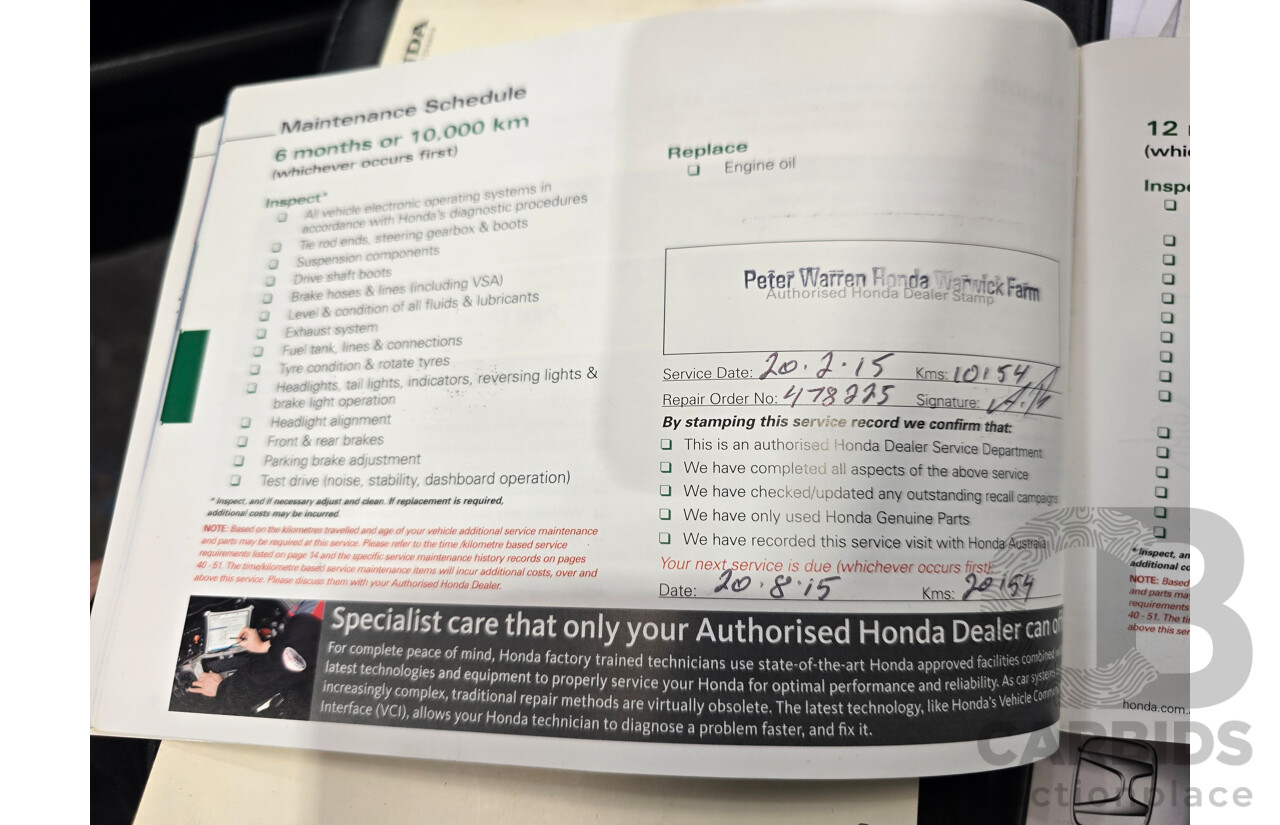 Maintenance Schedule
6 months or 10,000 km
(whichever occurs first)
Inspect*
All vehicle electronic operating systems in
accordance with Honda's diagnostic procedures
Tie rod ends, steering gearbox & boots
Suspension components
Drive shaft boots
Brake hoses & lines (including VSA)
Level & condition of all fluids & lubricants
Exhaust system
Fuel tank, lines & connections
Tyre condition & rotate tyres
Headlights, tail lights, indicators, reversing lights &
brake light operation
Headlight alignment
Front & rear brakes
Parking brake adjustment
Test drive (noise, stability, dashboard operation)
* Inspect, and if necessary adjust and clean. If replacement is required,
additional costs may be incurred.
NOTE: Based on the kilometres travelled and age of your vehicle additional service maintenance
and parts may be required at this service. Please refer to the time /kilometre based service
requirements listed on page 14 and the specific service maintenance history records on pages
40 - 51. The time/kilometre based service maintenance items will incur additional costs, over and
above this service. Please discuss them with your Authorised Honda Dealer.
Replace
Engine oil
Peter Warren Honda Warwick Farm
Authorised Honda Dealer Stamp
Service Date: 20.2.15 Kms: 10154
Repair Order No: 478225 Signature:
By stamping this service record we confirm that:
This is an authorised Honda Dealer Service Department
We have completed all aspects of the above service
We have checked/updated any outstanding recall campaigns
We have only used Honda Genuine Parts
We have recorded this service visit with Honda Australia
Your next service is due (whichever occurs first):
Date: 20.8.15 Kms: 20154
Specialist care that only your Authorised Honda Dealer can
For complete peace of mind, Honda factory trained technicians use state-of-the-art Honda approved facilities combined
latest technologies and equipment to properly service your Honda for optimal performance and reliability. As car systems
increasingly complex, traditional repair methods are virtually obsolete. The latest technology, like Honda's Vehicle
Interface (VCI), allows your Honda technician to diagnose a problem faster, and fix it.
12
(whi
Inspe
* Inspect, an
additional co
NOTE: Based
and parts ma
requirements
40 - 51. The ti
above this ser
honda.com.
CARBIDS
auctionplace